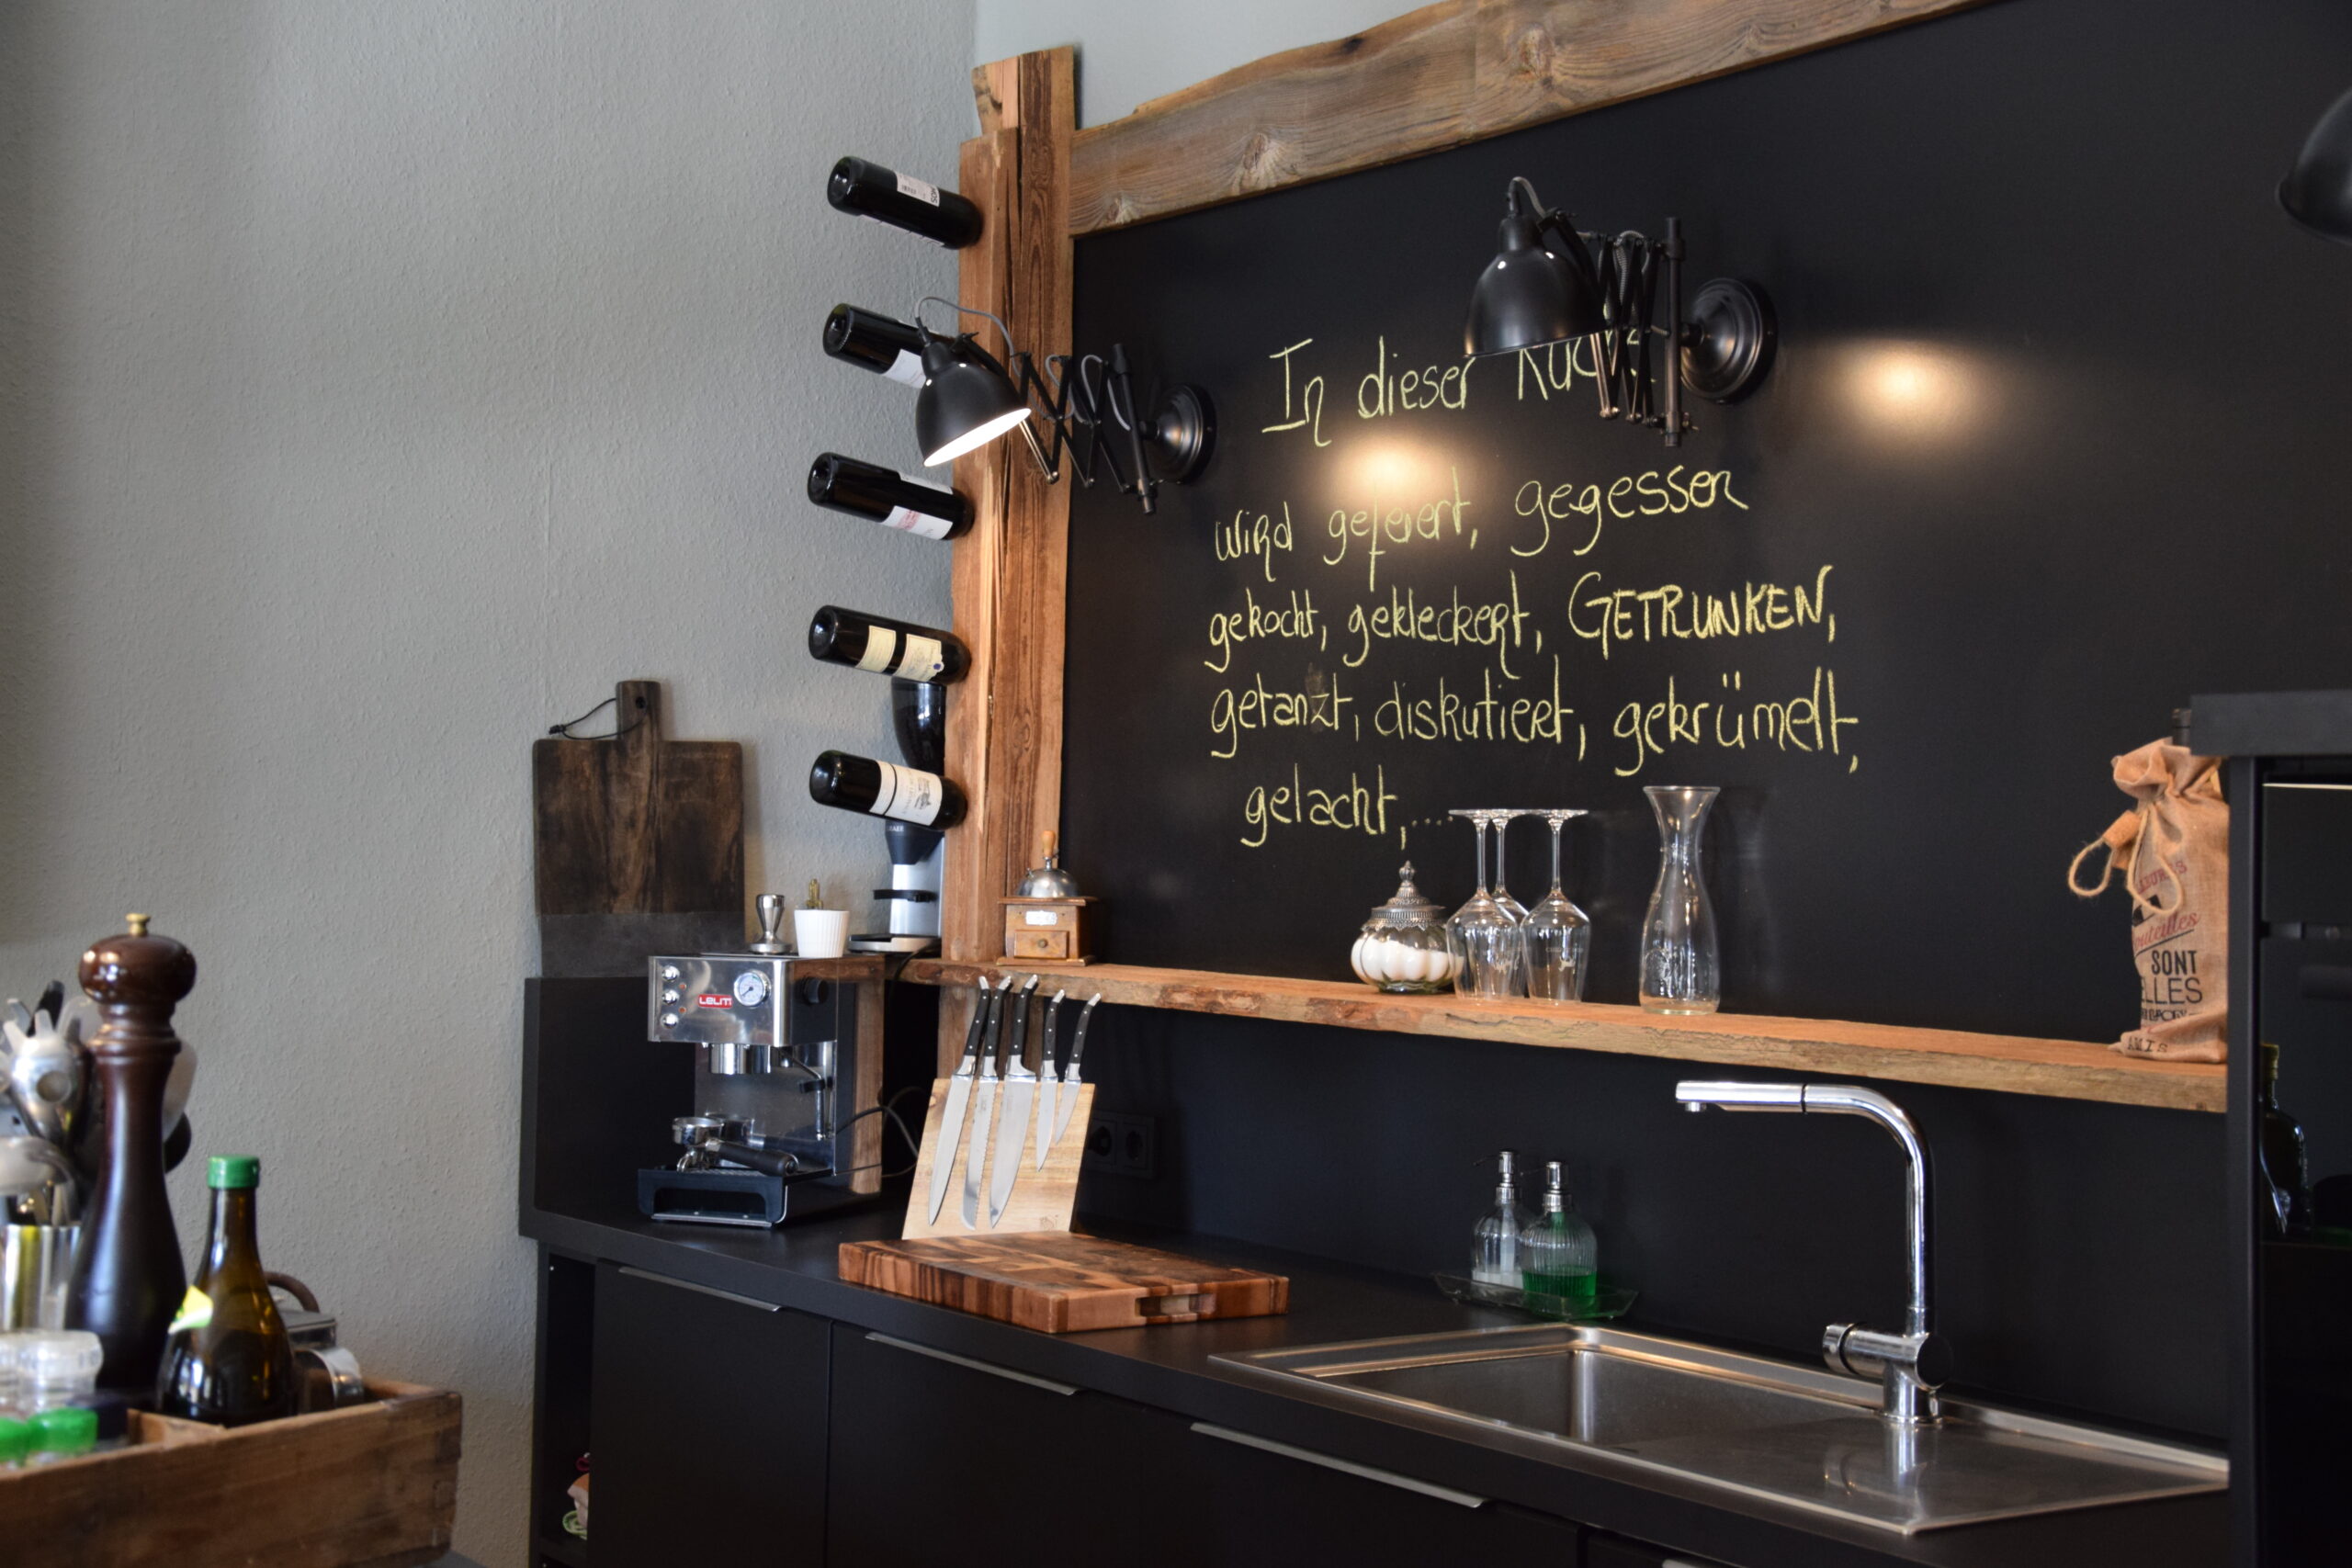 In dieser Küche
wird gefeiert, gegessen
gekocht, gekleckert, GETRUNKEN,
getanzt, diskutiert, gekrümelt,
gelacht,....
LELIT
SONT